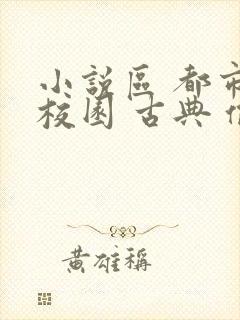 小説區 都市
校園 古典
黃雄稱